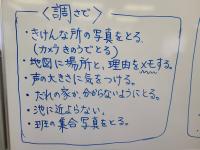 〈調さで〉
・きけんな所の写真をとる。
（カメラきのうでとる）
・地図に場所と、理由をメモする。
・声の大きさに気をつける。
・だれの家か、分からないようにとる。
・池に近よらない。
・班の集合写真をとる。